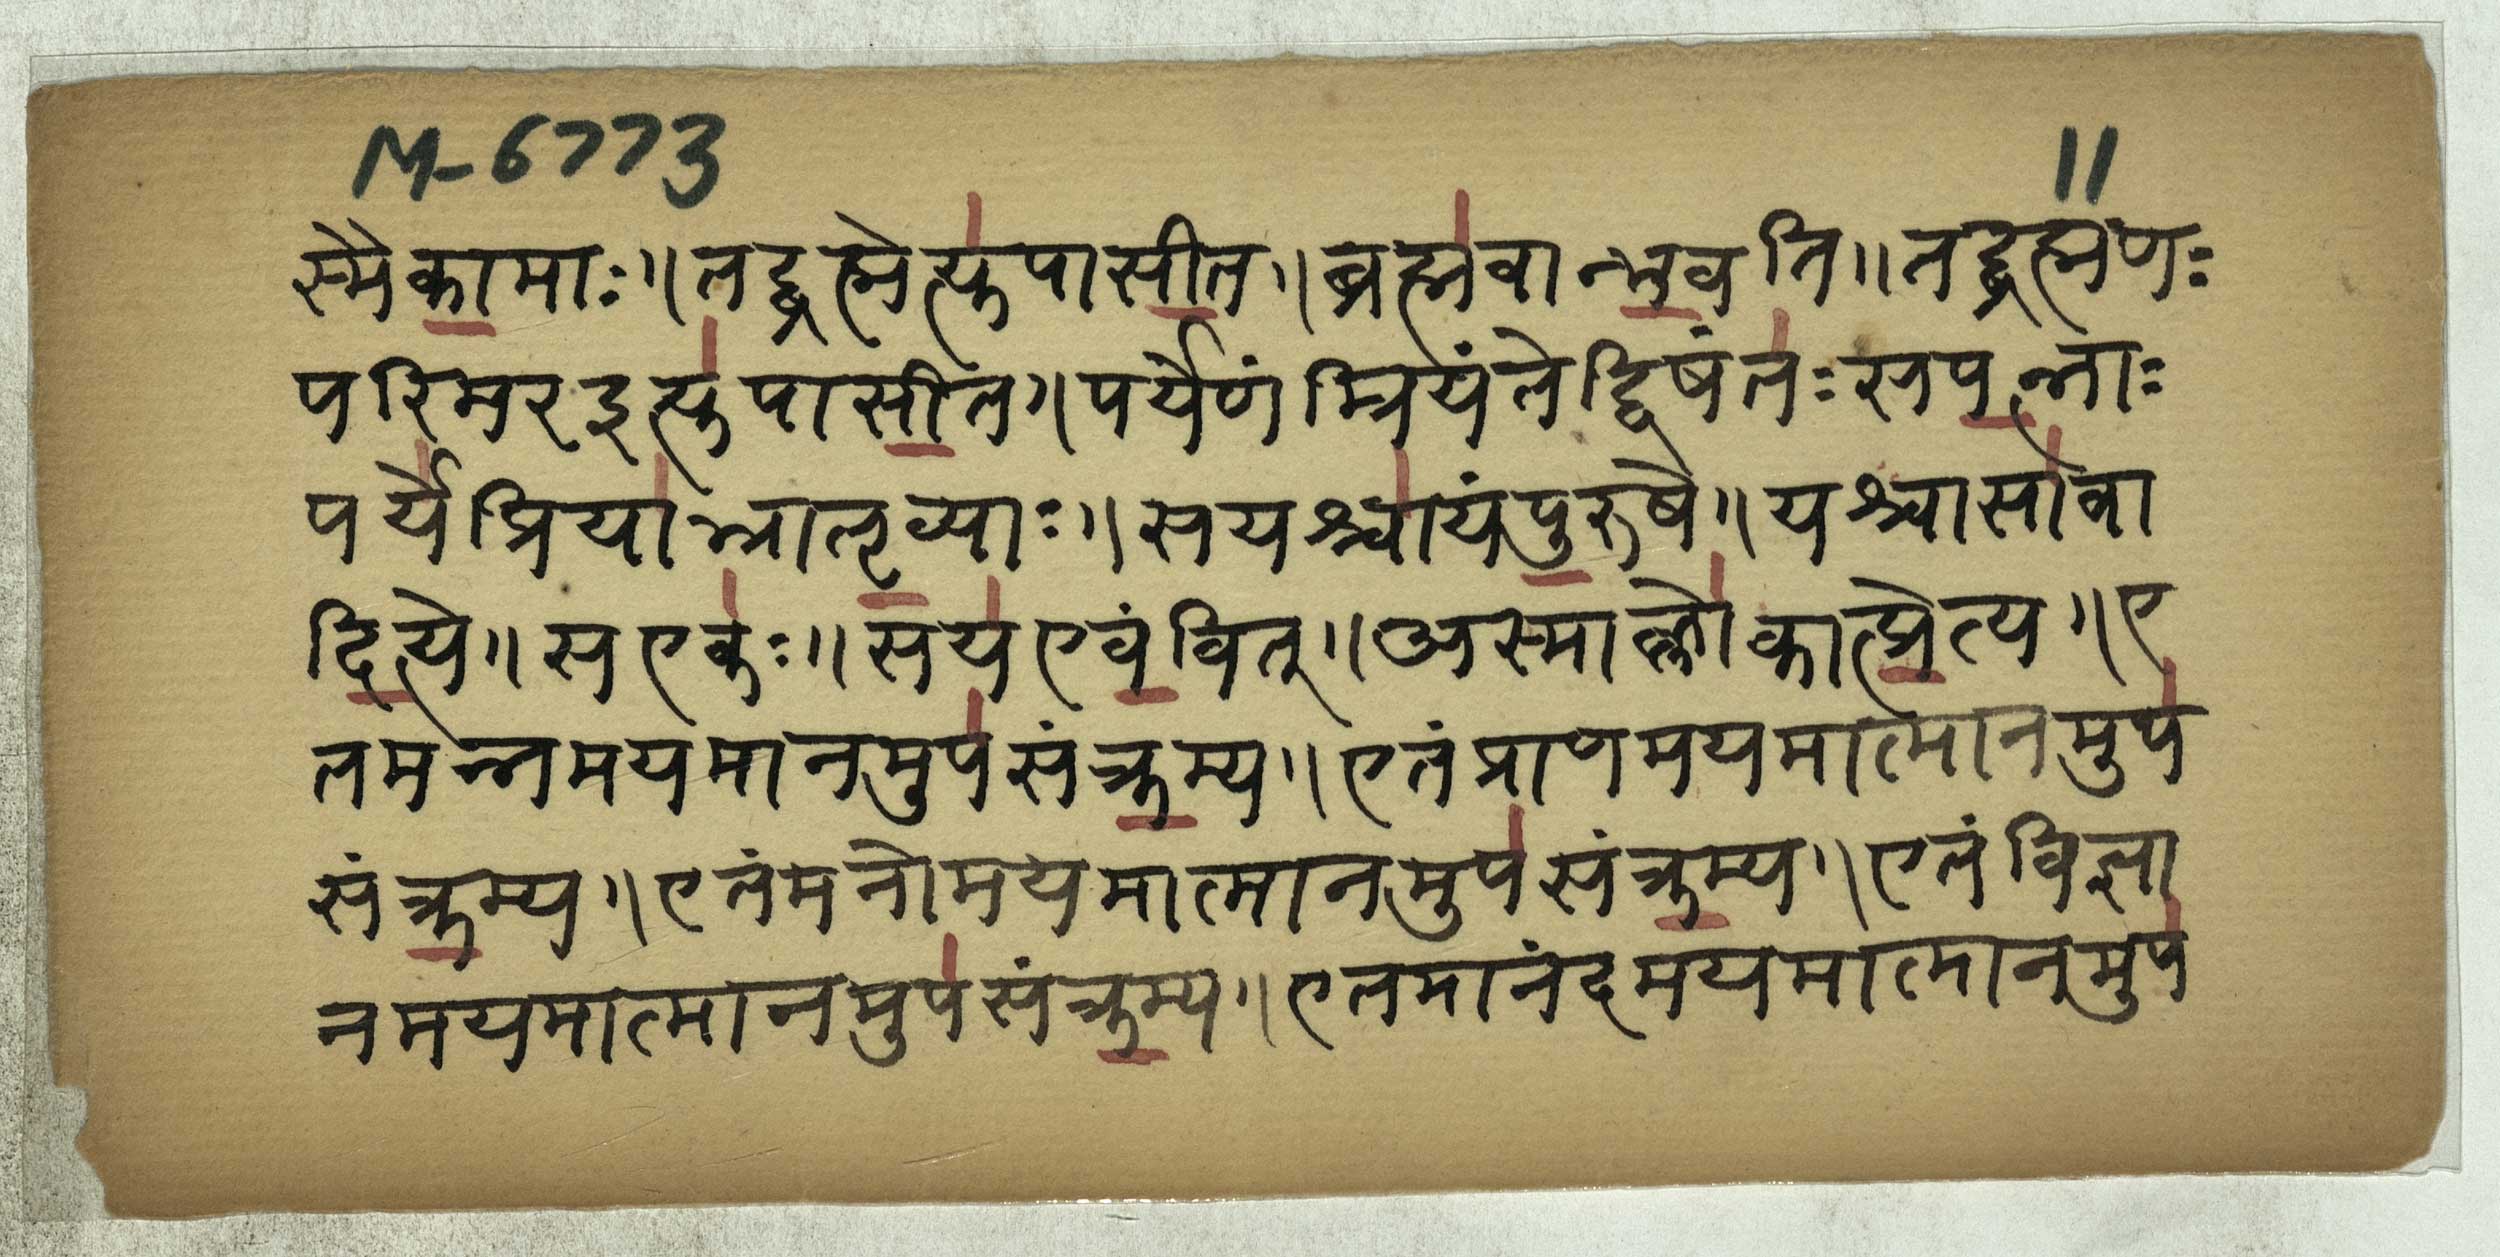 M-6773 11
स्मै॑कामाः॒॥तद्ब्रह्मेत्यु॑पासी॒त॥ब्रह्म॑वान्भ॒वति॥तद्ब्रह्मणः
परिमरइत्यु॑पासी॒त॥पर्येणंम्रियंतेद्विषंतः॑सप॒त्नाः
पर्ये॑प्रिया॑भ्रातृ॒व्याः॥सयश्चा॑यंपु॒रुषे॥यश्चासा॑वा
दि॒त्ये॥सएकः॑॥सय॑एवं॒वित्॥अस्माल्लो॑कात्प्रे॒त्य॥ए
तमन्नमयमानमुप॑संक्र॒म्य॥एतंप्राणमयमात्मानमुप॑
संक्र॒म्य॥एतंमनोमयमात्मानमुप॑संक्र॒म्य॥एतंविज्ञा
नमयमात्मानमुप॑संक्र॒म्य॥एतमानंदमयमात्मानमुप॑